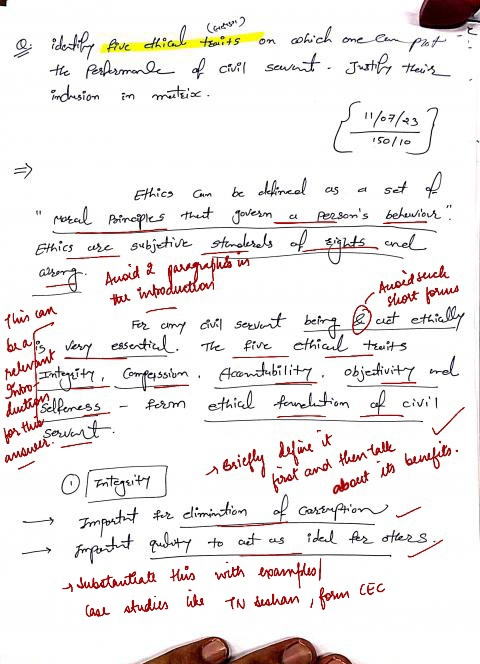 Q. identify five ethical traits on which one can plot
the performance of civil servant. Justify their
inclusion in matrix.
11/07/23
150/10
⇒
Ethics can be defined as a set of
"Moral Principles that govern a person's behaviour".
Ethics are subjective standerds of rights and
wrong.
Avoid 2 paragraphs in
the introduction
Avoid such
short forms
This can
be a
relevant
Intro-
duction
for this
answer.
For any civil servant being & act ethically
is very essential. The five ethical traits
Integrity, Compession, Accountability, objectivity and
Selflesness - form ethical foundation of civil
servant.
→ Briefly define it
first and then talk
about its benefits.
① Integrity
→ Important for elimintion of corruption
→ Important quality to act as ideal for others.
→ Substantiate this with examples/
case studies like TN Seshan, form CEC